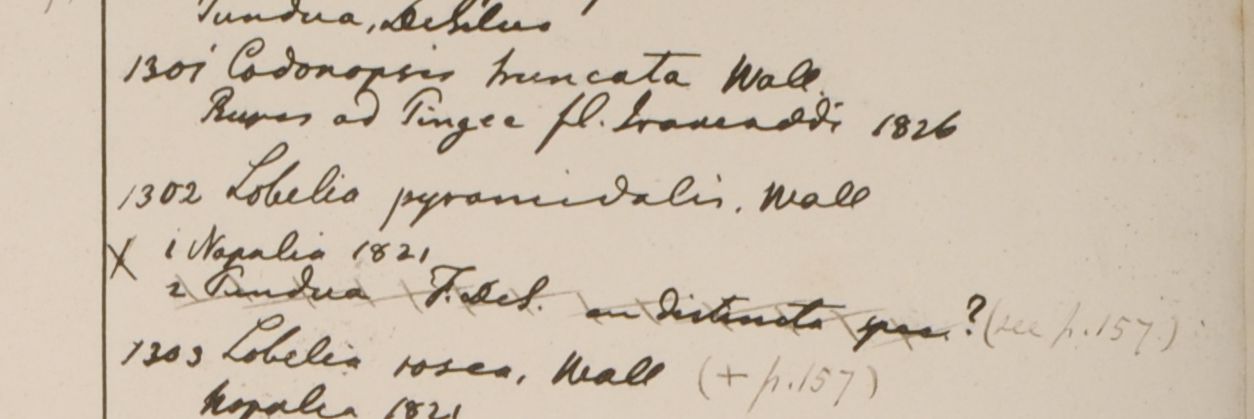 Tundua, Deblus
1301 Codonopsis truncata Wall.
Rupes ad Pingee fl. Irawaddi 1826
1302 Lobelia pyramidalis. Wall
X 1 Napalia 1821
2 Tundua F. Des. an distincta spec.? (see p. 157.)
1303 Lobelia rosea. Wall (+ p. 157)
Napalia 1821